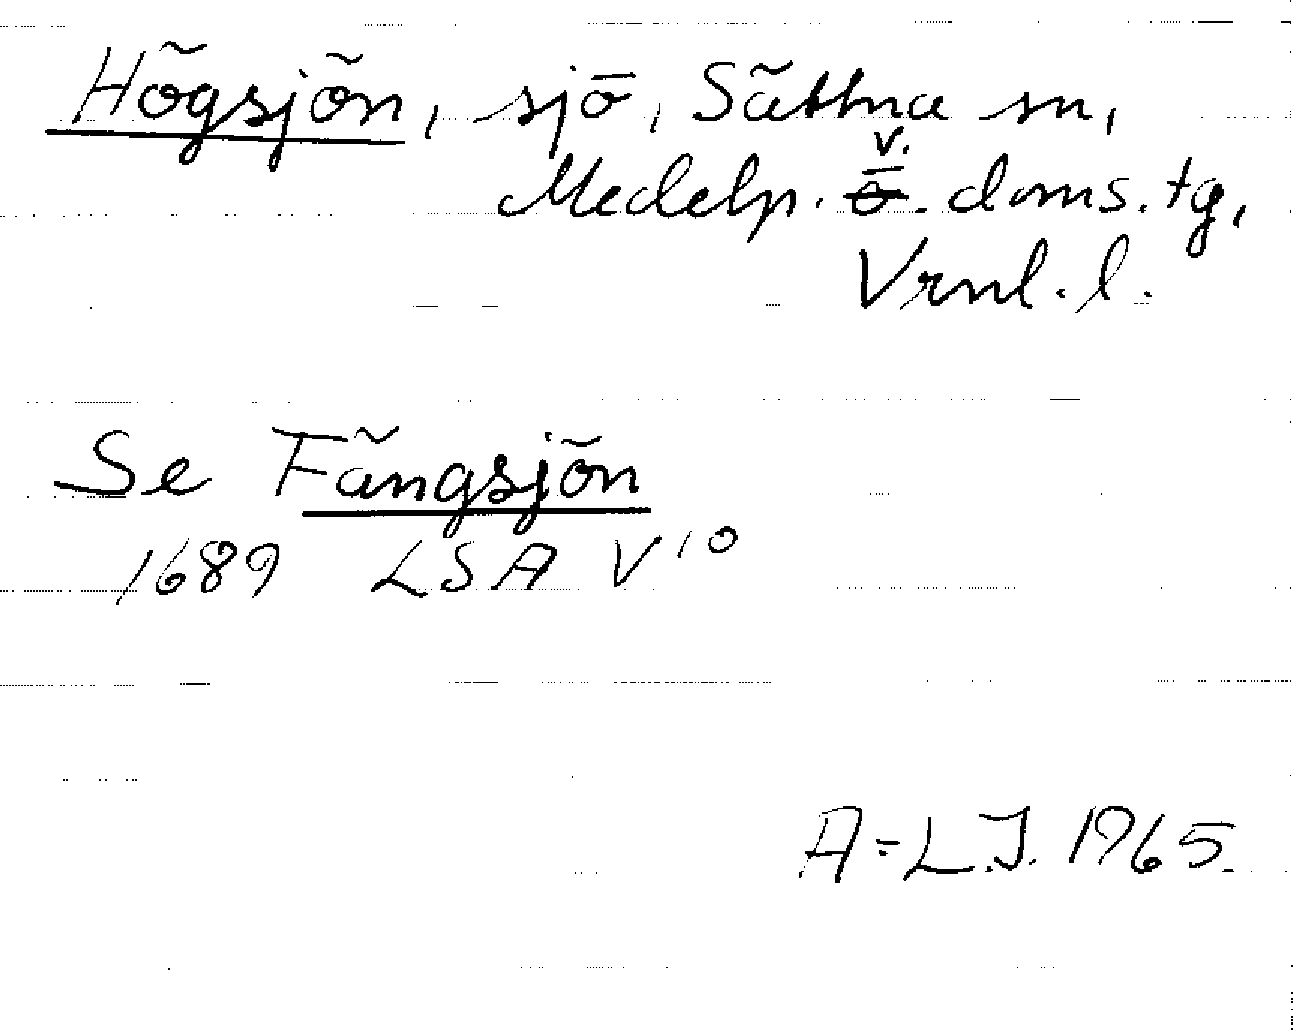 Högsjön, sjö, Sättna sn,
Medelp. v. doms. tg,
Vrnl. l.
Se Fängsjön
1689 LSA V 10
A-L.J. 1965.